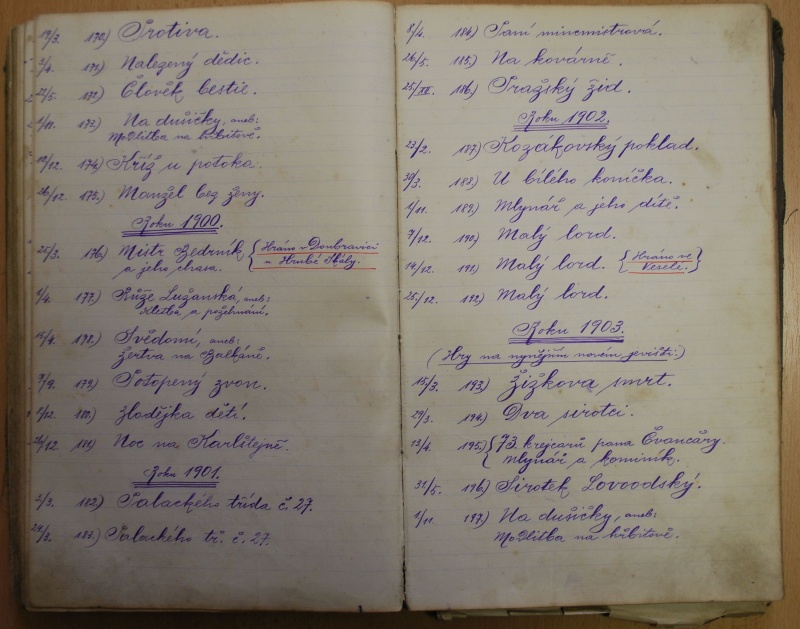 19/3. 170.) Protiva.
3/4. 171.) Nalezený dědic.
21/5. 172.) Člověk bestie.
1/11. 173.) Na dušičky, aneb:
Modlitba na hřbitově.
10/12. 174.) Kříž u potoka.
26/12. 175.) Manžel bez ženy.
Roku 1900.
25/3. 176.) Mistr Bedrník {Hráno v Doubravici
a jeho chasa. u Hrubé Skály.
1/4. 177.) Růže Lužanská, aneb:
Kletba a požehnání.
15/4. 178.) Svědomí, aneb:
žertva na Balkáně.
9/9. 179.) Potopený zvon.
2/12. 180.) Zlodějka dětí.
26/12. 181.) Noc na Karlštejně.
Roku 1901.
2/3. 182.) Palackého třída č. 27.
24/3. 183.) Palackého tř. č. 27.
8/4. 184.) Paní mincmistrová.
26/5. 185.) Na kovárně.
25/XII. 186.) Pražský žid.
Roku 1902.
23/2. 187.) Kozákovský poklad.
30/3. 188.) U bílého koníčka.
1/11. 189.) Mlynář a jeho dítě.
7/12. 190.) Malý lord.
14/12. 191.) Malý lord. {Hráno ve
Veselé.}
25/12. 192.) Malý lord.
Roku 1903.
(Hry na nynějším novém jevišti:)
15/3. 193.) Žižkova smrt.
29/3. 194.) Dva sirotci.
13/4. 195.) {73 krejcarů pana Švancáry.
Mlynář a kominík.
31/5. 196.) Sirotek Lovoodský.
1/11. 197.) Na dušičky, aneb:
Modlitba na hřbitově.